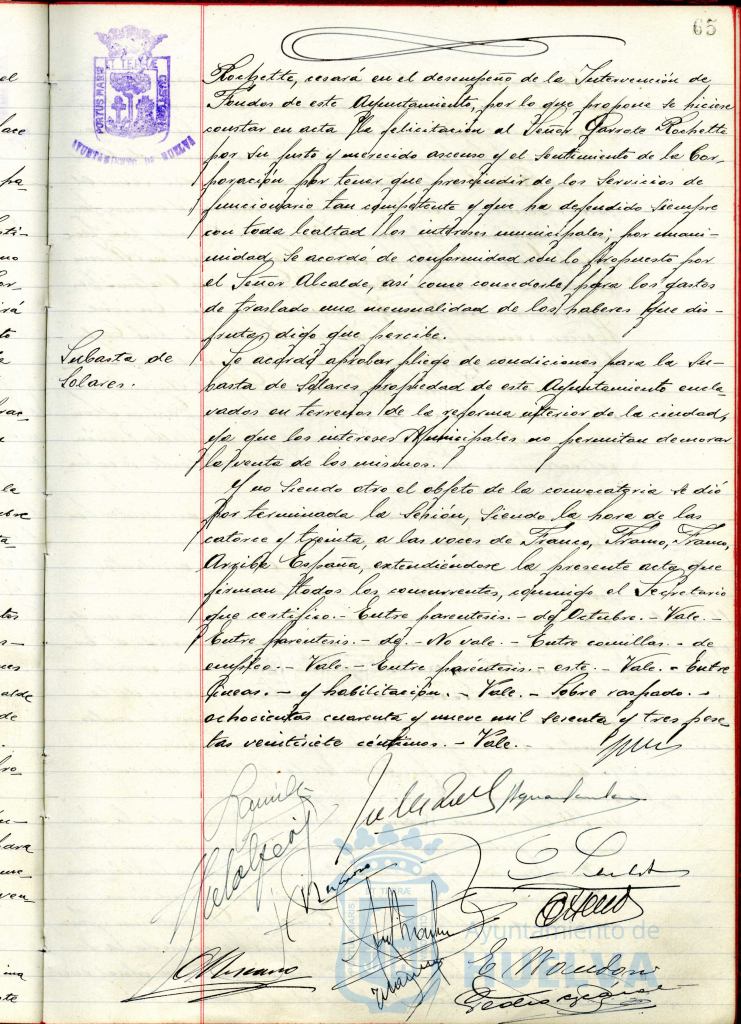 65
PORTUS MARIS ET TERRÆ CUSTODIA
AYUNTAMIENTO DE HUELVA
Rochette, cesará en el desempeño de la Intervención de
Fondos de este Ayuntamiento, por lo que propone se hiciese
constar en acta la felicitación al Señor Garrote Rochette
por su justo y merecido ascenso y el sentimiento de la Cor-
poración por tener que prescindir de los servicios de
funcionario tan competente y que ha defendido siempre
con toda lealtad los intereses municipales; por unani-
midad se acordó de conformidad con lo propuesto por
el Señor Alcalde, así como concederle para los gastos
de traslado una mensualidad de los haberes que dis-
fruta, digo que percibe.
Subasta de
Solares.
Se acordó aprobar pliego de condiciones para la su-
basta de solares propiedad de este Ayuntamiento encla-
vados en terrenos de la reforma interior de la ciudad,
ya que los intereses Municipales no permitan demorar
la venta de los mismos.
Y no siendo otro el objeto de la convocatoria se dió
por terminada la sesión, siendo la hora de las
catorce y treinta, a las voces de Franco, Franco, Franco,
Arriba España, extendiéndose la presente acta que
firman todos los concurrentes, conmigo el Secretario
que certifico.- Entre parentesis.- de Octubre.- Vale.-
Entre parentesis.- de.- No vale.- Entre comillas.- de
empleo.- Vale.- Entre paréntesis.- este.- Vale.- Entre
líneas.- y habilitación.- Vale.- Sobre raspado.-
ochocientas cuarenta y nueve mil sesenta y tres pese
tas veintisiete céntimos.- Vale.
Ayuntamiento de
HUELVA